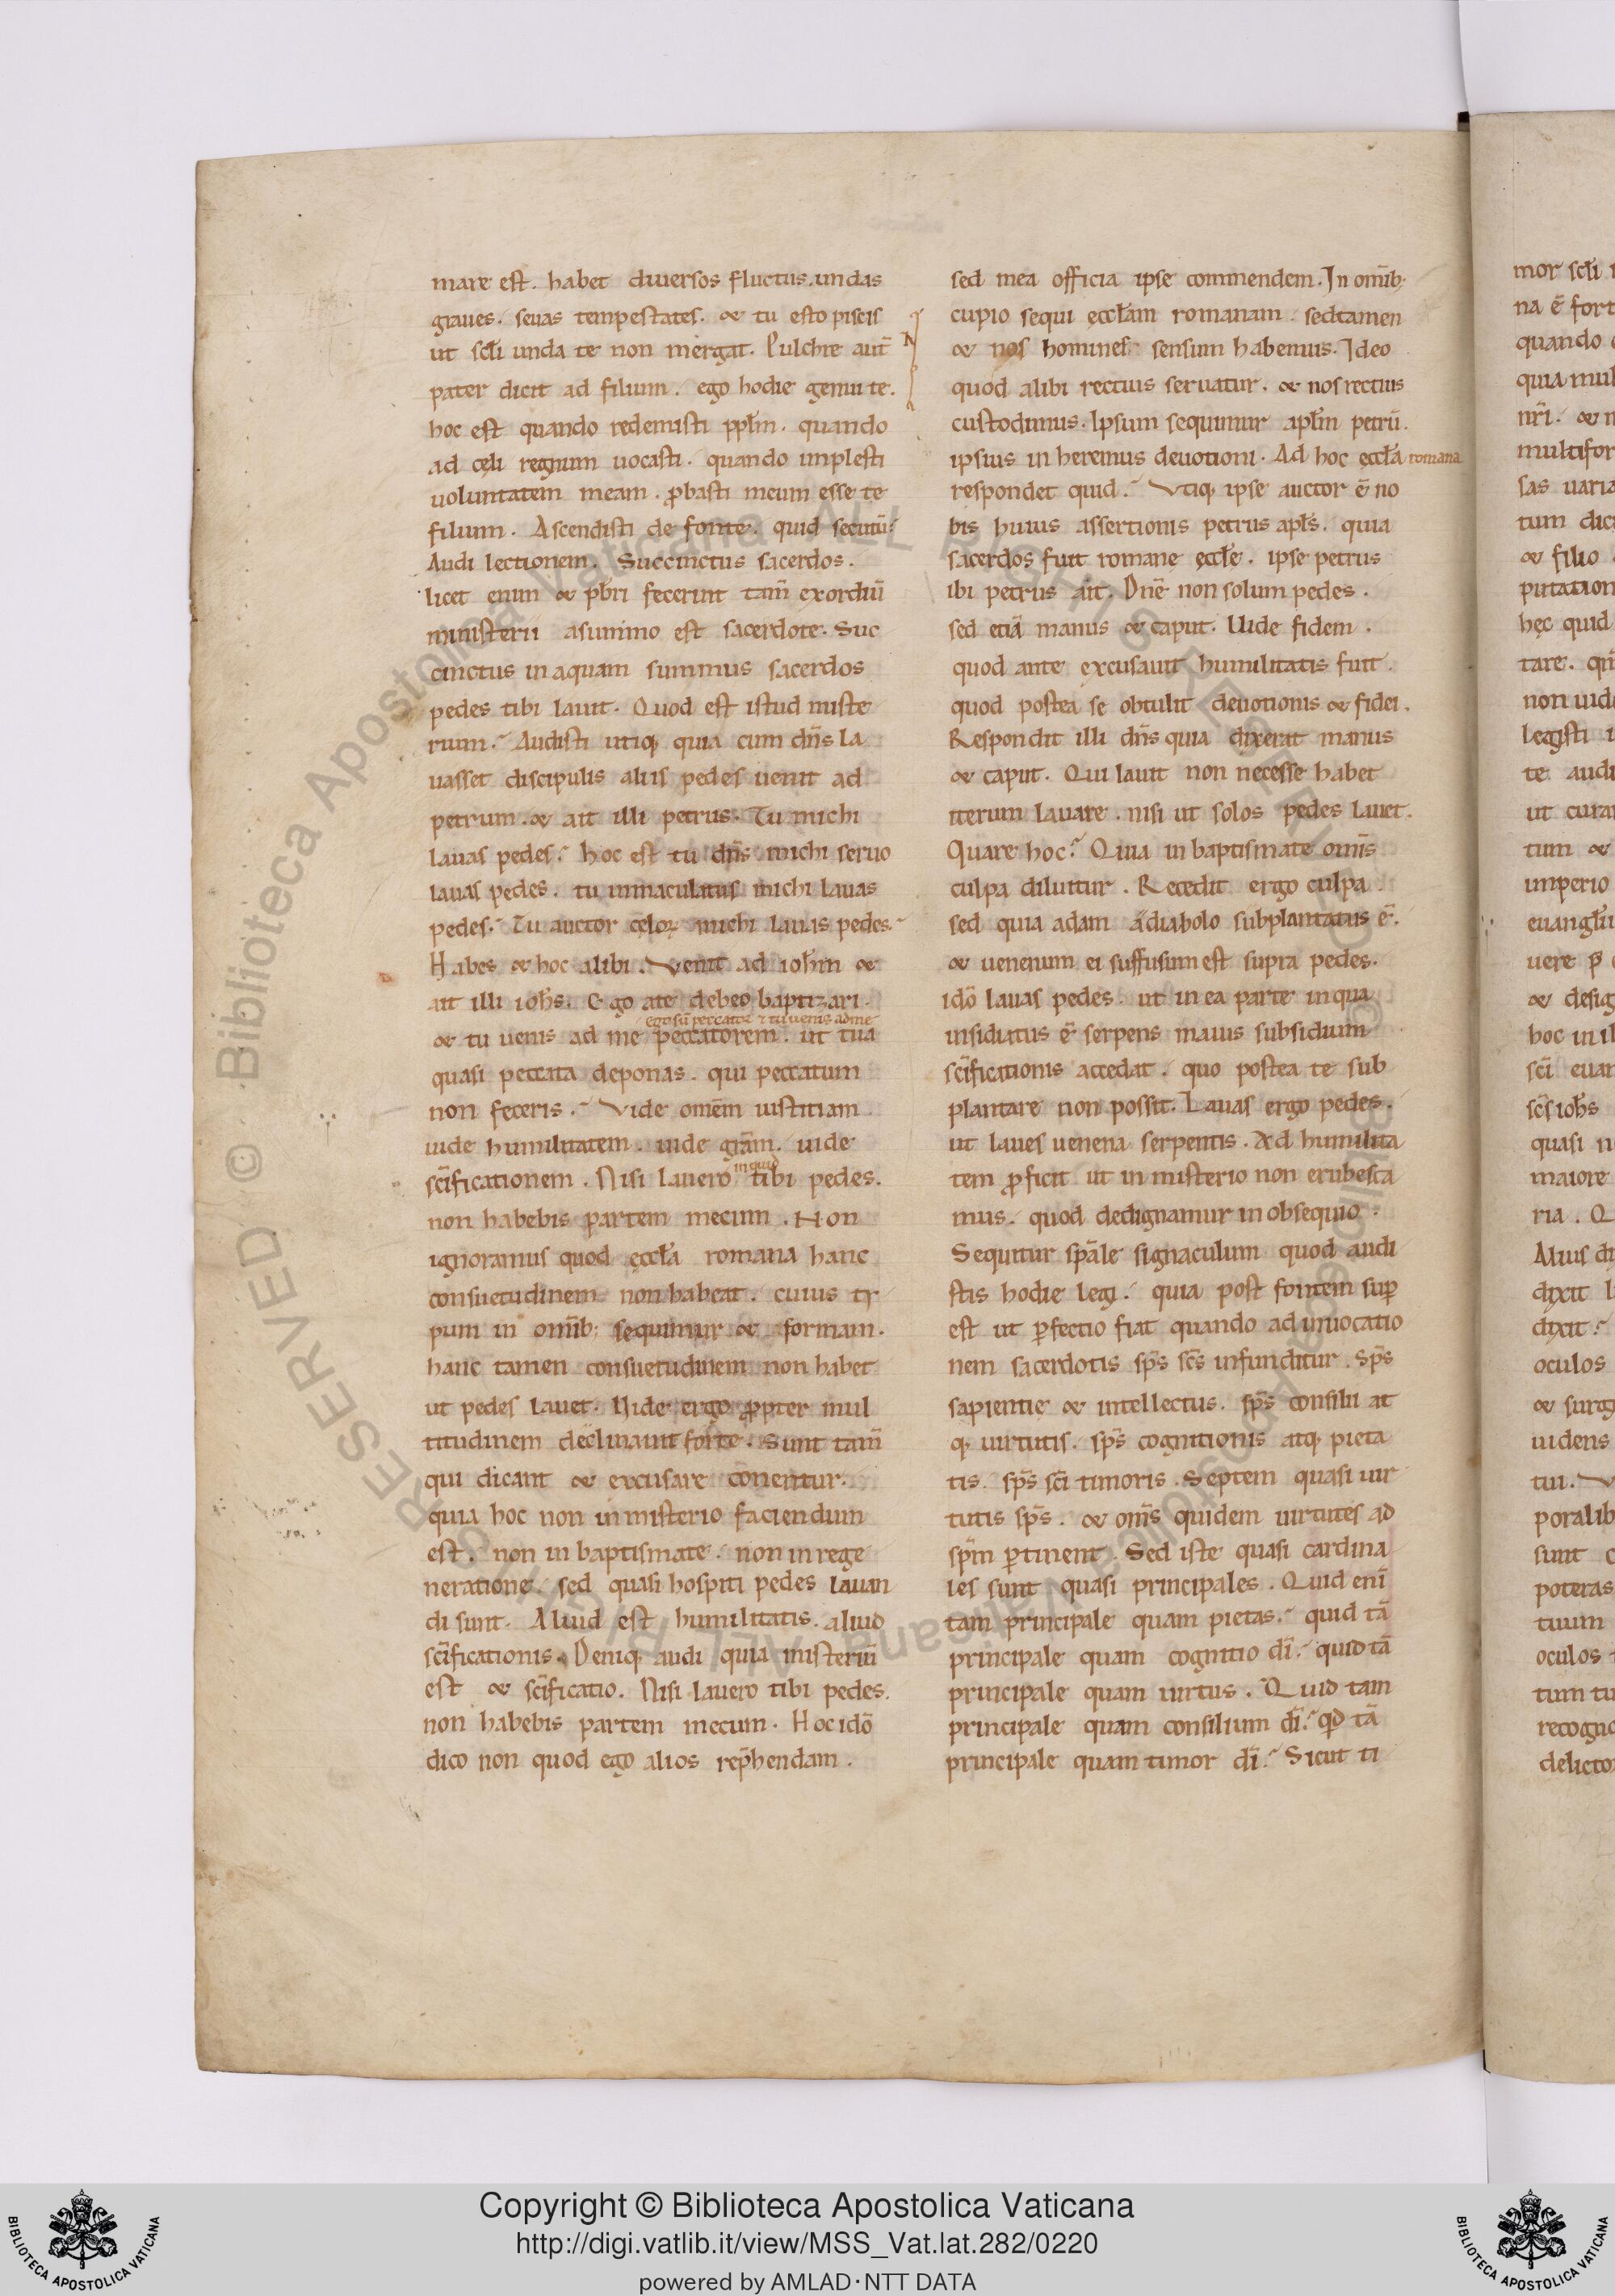 mare est. habet diuersos fluctus. undas
graues. seuas tempestates. & tu esto piscis
ut scłi unda te non mergat. Pulchre aut̄
pater dicit ad filium. ego hodie genui te.
hoc est quando redemisti ppłm. quando
ad cęli regnum uocasti. quando implesti
uoluntatem meam. ꝓbasti meum esse te
filium. Ascendisti de fonte. quid secutū?
Audi lectionem. Succinctus sacerdos.
licet enim & pb̄ri fecerint tam̄ exordiū
ministerii asummo est sacerdote. Suc
cinctus in aquam summus sacerdos
pedes tibi lauit. Quod est istud miste
rium? Audisti utiq; quia cum dn̄s la
uasset discipulis aliis pedes uenit ad
petrum. & ait illi petrus. Tu michi
lauas pedes? hoc est tu dn̄s michi seruo
lauas pedes. tu inmaculatus michi lauas
pedes? Tu auctor cęloꝝ michi lauas pedes?
Habes & hoc alibi. Venit ad ioh̄m &
ait illi ioh̄s. Ego ate debeo baptizari.
ego sū peccator & tu uenis ad me
& tu uenis ad me peccatorem. ut tua
quasi peccata deponas. qui peccatum
non feceris? Vide omēm iustitiam
uide humilitatem. uide grām. uide
sc̄ificationem. Nisi lauero inquid tibi pedes.
non habebis partem mecum. Non
ignoramus quod ęccła romana hanc
consuetudinem non habeat. cuius ty
pum in omīb; sequimur & formam.
hanc tamen consuetudinem non habet
ut pedes lauet. Vide ergo ꝓpter mul
titudinem declinauit forte. Sunt tam̄
qui dicant & excusare conentur.
quia hoc non in misterio faciendum
est. non in baptismate. non in rege
neratione. sed quasi hospiti pedes lauan
di sunt. Aliud est humilitatis. aliud
sc̄ificationis. Deniq; audi quia misteriū
est & sc̄ificatio. Nisi lauero tibi pedes.
non habebis partem mecum. Hoc idō
dico non quod ego alios rep̄hendam.
sed mea officia ipse commendem. In omīb;
cupio sequi ęccłam romanam. sedtamen
& nos homines sensum habemus. Ideo
quod alibi rectius seruatur. & nos rectius
custodimus. Ipsum sequimur apłm petrū.
ipsius in heremus deuotioni. Ad hoc ęccła romana
respondet quid? Vtiq; ipse auctor ē no
bis huius assertionis petrus apłs. quia
sacerdos fuit romane ęccłe. ipse petrus
ibi petrus ait. Dn̄e non solum pedes.
sed etiā manus & caput. Uide fidem.
quod ante excusauit humilitatis fuit.
quod postea se obtulit deuotionis & fidei.
Respondit illi dn̄s quia dixerat manus
& caput. Qui lauit non necesse habet
iterum lauare. nisi ut solos pedes lauet.
Quare hoc? Quia in baptismate omīs
culpa diluitur. Recedit ergo culpa
sed quia adam adiabolo subplantatus ē.
& uenenum ei suffusum est supra pedes.
idō lauas pedes. ut in ea parte in qua
insidiatus ē serpens maius subsidium
sc̄ificationis accedat. quo postea te sub
plantare non possit. Lauas ergo pedes.
ut laues uenena serpentis. Ad humilita
tem ꝓficit ut in misterio non erubesca
mus. quod dedignamur in obsequio.
Sequitur spāle signaculum quod audi
stis hodie legi? quia post fontem suꝑ
est ut ꝑfectio fiat quando ad inuocatio
nem sacerdotis sp̄s sc̄s infunditur. sp̄s
sapientię & intellectus. sp̄s consilii at
q; uirtutis. sp̄s cognitionis atq; pieta
tis. sp̄s sc̄i timoris. Septem quasi uir
tutis sp̄s. & omīs quidem uirtutes ad
sp̄m ꝑtinent. Sed iste quasi cardina
les sunt quasi principales. Quid eni
tam principale quam pietas? quid tā
principale quam cognitio dī? quid tā
principale quam uirtus. Quid tam
principale quam consilium dī? qd tā
principale quam timor dī? Sicut ti
Copyright © Biblioteca Apostolica Vaticana
http://digi.vatlib.it/view/MSS_Vat.lat.282/0220
powered by AMLAD·NTT DATA
BIBLIOTECA APOSTOLICA VATICANA
BIBLIOTECA APOSTOLICA VATICANA